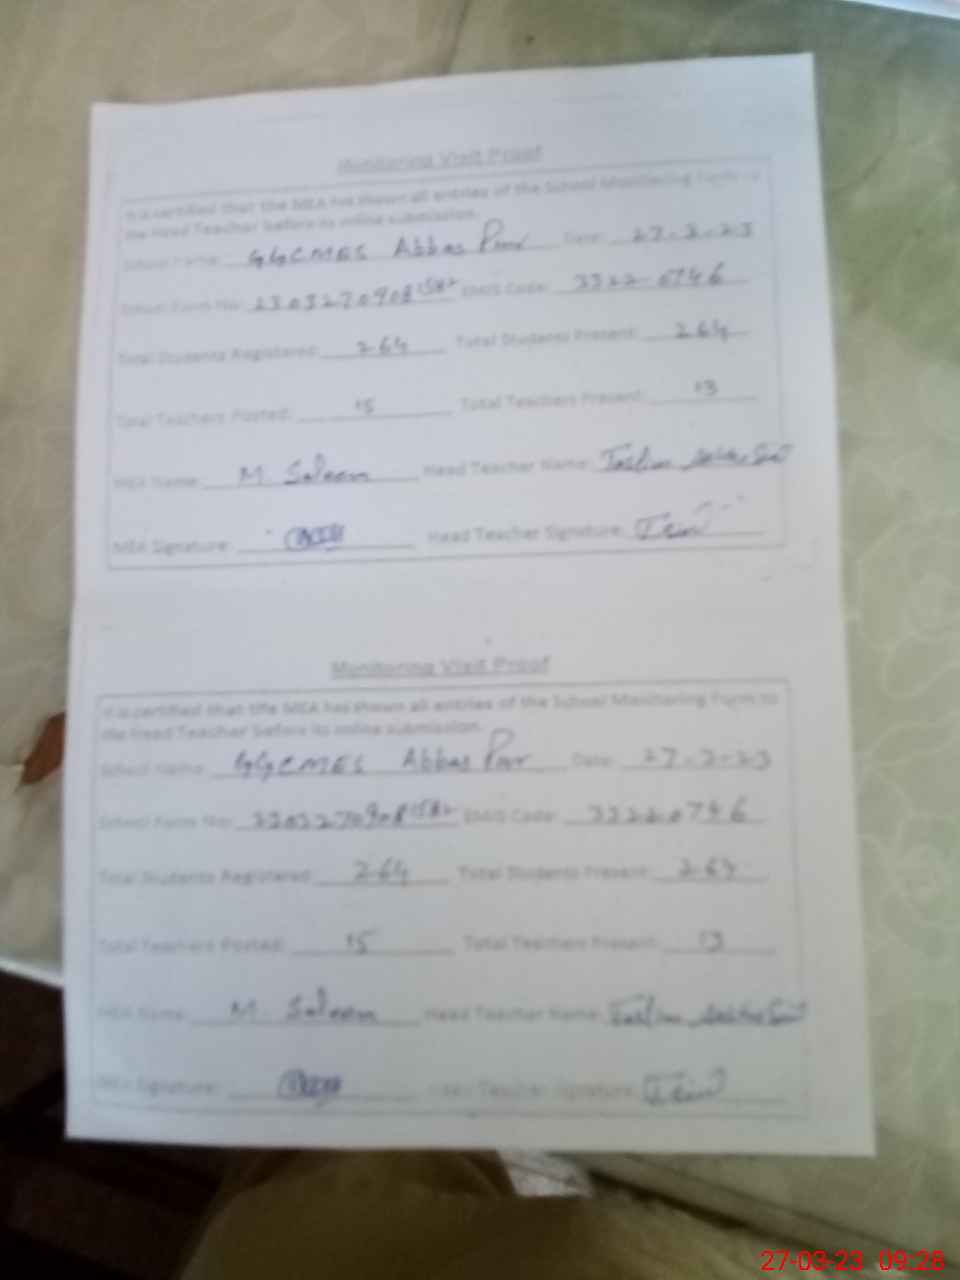 Monitoring Visit Proof
It is certified that the MEA has shown all entries of the School Monitoring Form to
the Head Teacher before its online submission.
School Name: GGCMES Abbas Pur Date: 27-3-23
School Form No: 2303270908 1582 EMIS Code: 33220746
Total Students Registered: 264 Total Students Present: 264
Total Teachers Posted: 15 Total Teachers Present: 13
MEA Name: M. Saleem Head Teacher Name: Taslim
MEA Signature: Head Teacher Signature:
Monitoring Visit Proof
It is certified that the MEA has shown all entries of the School Monitoring Form to
the Head Teacher before its online submission.
School Name: GGCMES Abbas Pur Date: 27-3-23
School Form No: 2303270908 1582 EMIS Code: 33220746
Total Students Registered: 264 Total Students Present: 264
Total Teachers Posted: 15 Total Teachers Present: 13
MEA Name: M. Saleem Head Teacher Name: Taslim
MEA Signature: Head Teacher Signature:
27-03-23 09:28